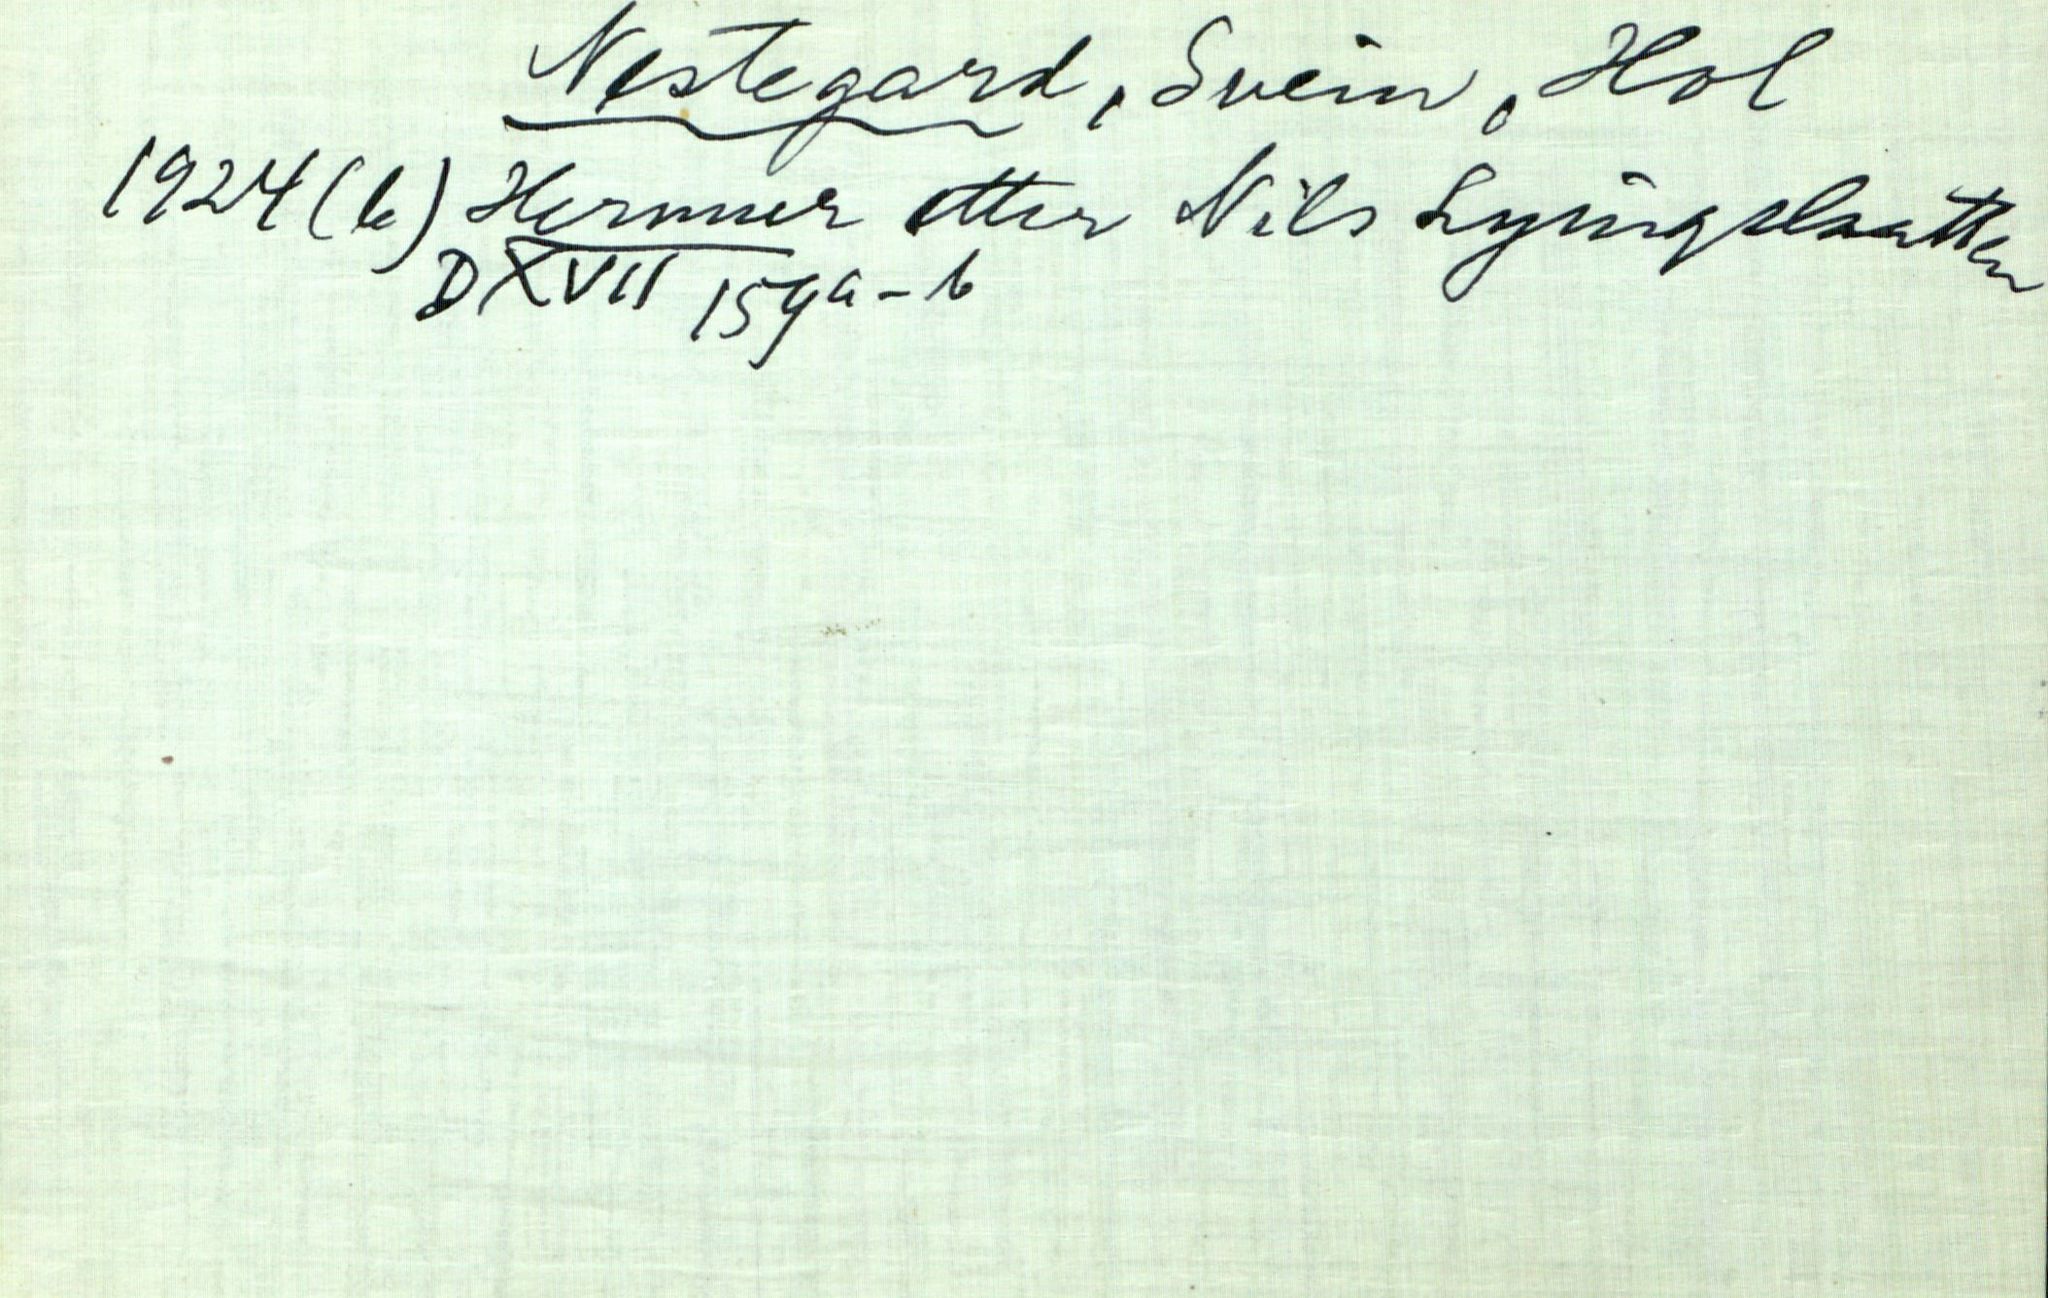 Nestegard, Svein, Hol
1924 (b) Hermer etter Nils Lyingslaatten
D XVII 159a-b